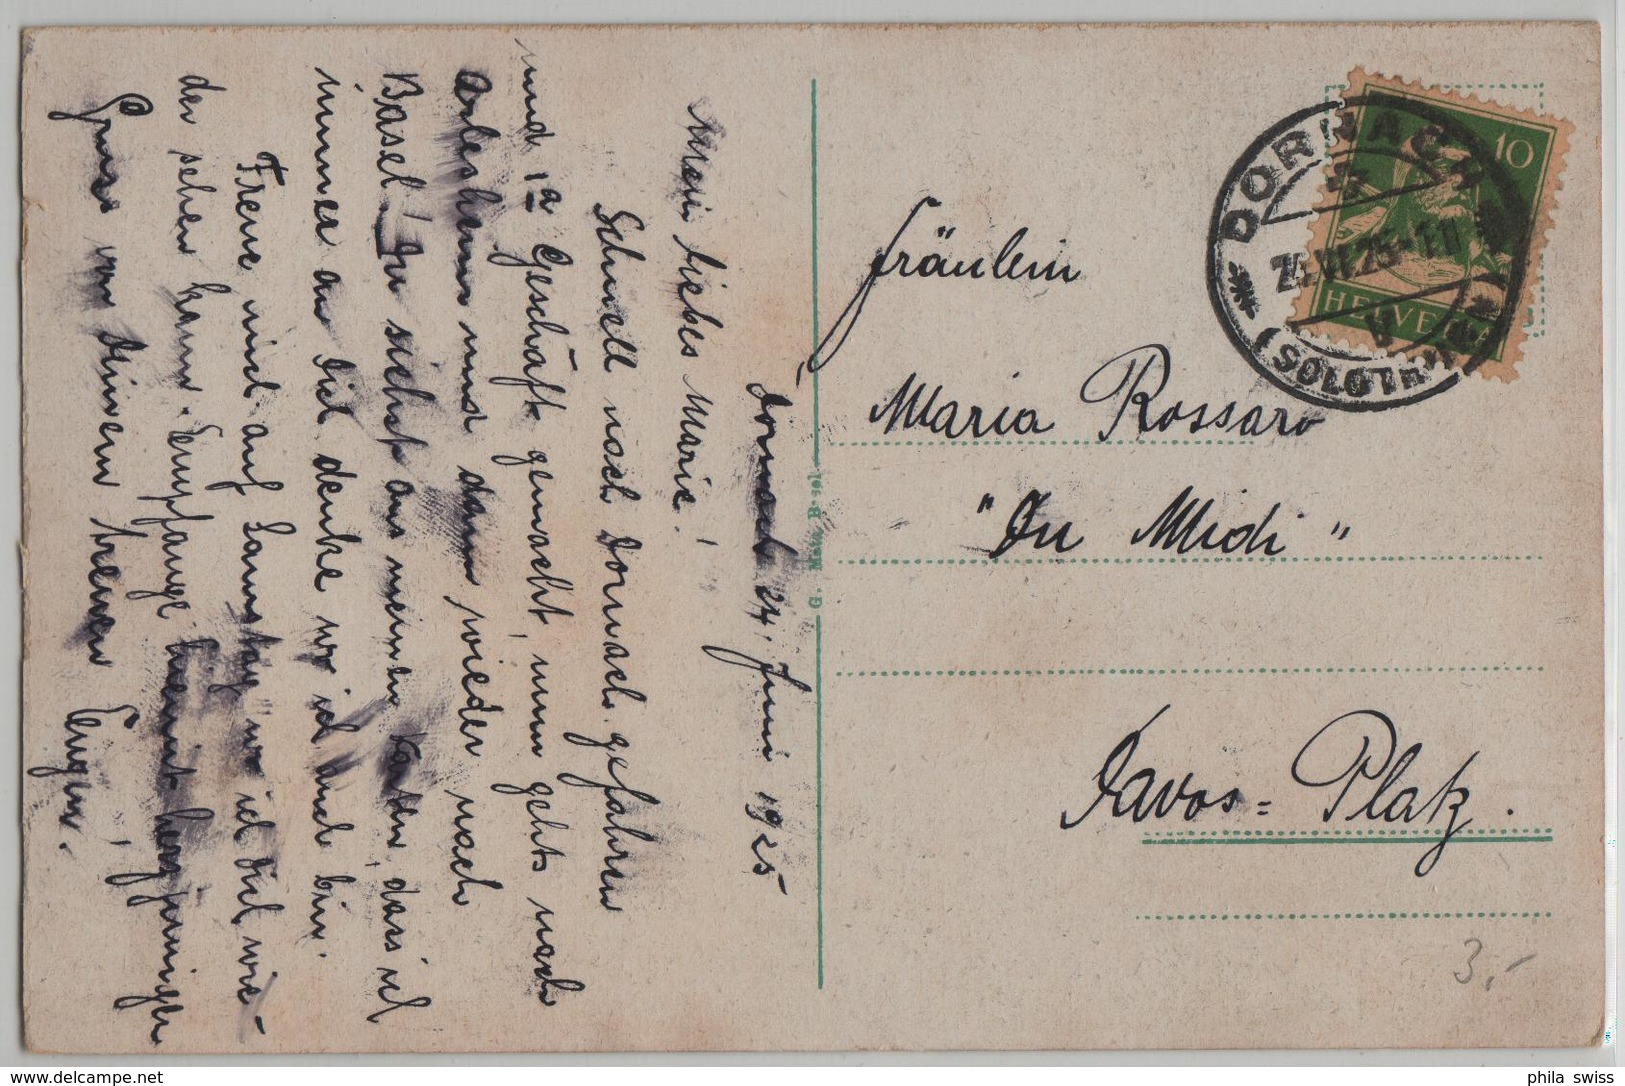 Dornach 24. Juni 1925
Mein liebes Marie!
Schnell nach Dornach gefahren
und 1a Geschäft gemacht, nun gehts nach
Arlesheim und dann wieder nach
Basel! Du siehst aus meinen Karten, dass ich
immer an Dich denke wo ich auch bin.
Freue mich auf Samstag wo ich Dich wie-
der sehen kann. Empfange heut herzinnigen
Gruss von Deinem treuen Eugen.
Fräulein
Maria Rossaro
"Du Midi"
Davos=Platz.
G. Metz, Basel
DORNACH
VI.25
V
(SOLOTHURN)
10
HELVETIA
3.-
delcampe.net
phila swiss